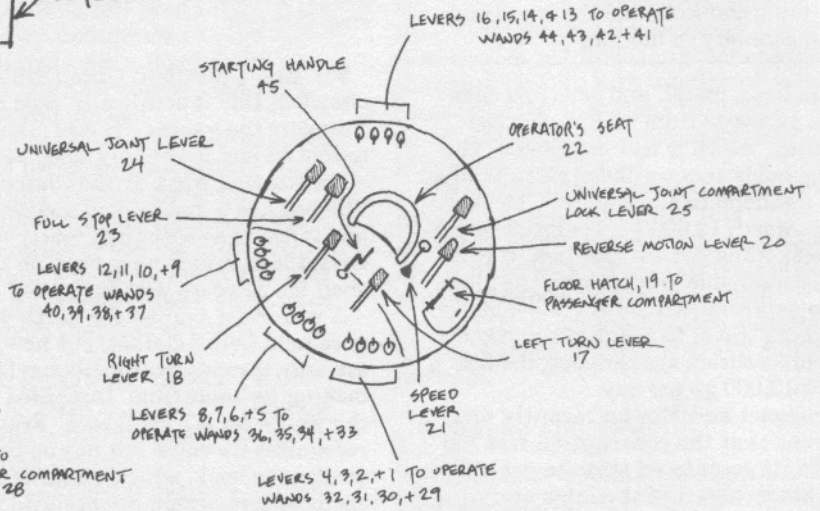 LEVERS 16, 15, 14, & 13 TO OPERATE
WANDS 44, 43, 42, + 41
STARTING HANDLE
45
OPERATOR'S SEAT
22
UNIVERSAL JOINT LEVER
24
UNIVERSAL JOINT COMPARTMENT
LOCK LEVER 25
FULL STOP LEVER
23
REVERSE MOTION LEVER 20
LEVERS 12, 11, 10, + 9
TO OPERATE WANDS
40, 39, 38, + 37
FLOOR HATCH, 19 TO
PASSENGER COMPARTMENT
LEFT TURN LEVER
17
RIGHT TURN
LEVER 18
SPEED
LEVER
21
LEVERS 8, 7, 6, + 5 TO
OPERATE WANDS 36, 35, 34, + 33
COMPARTMENT
28
LEVERS 4, 3, 2, + 1 TO OPERATE
WANDS 32, 31, 30, + 29